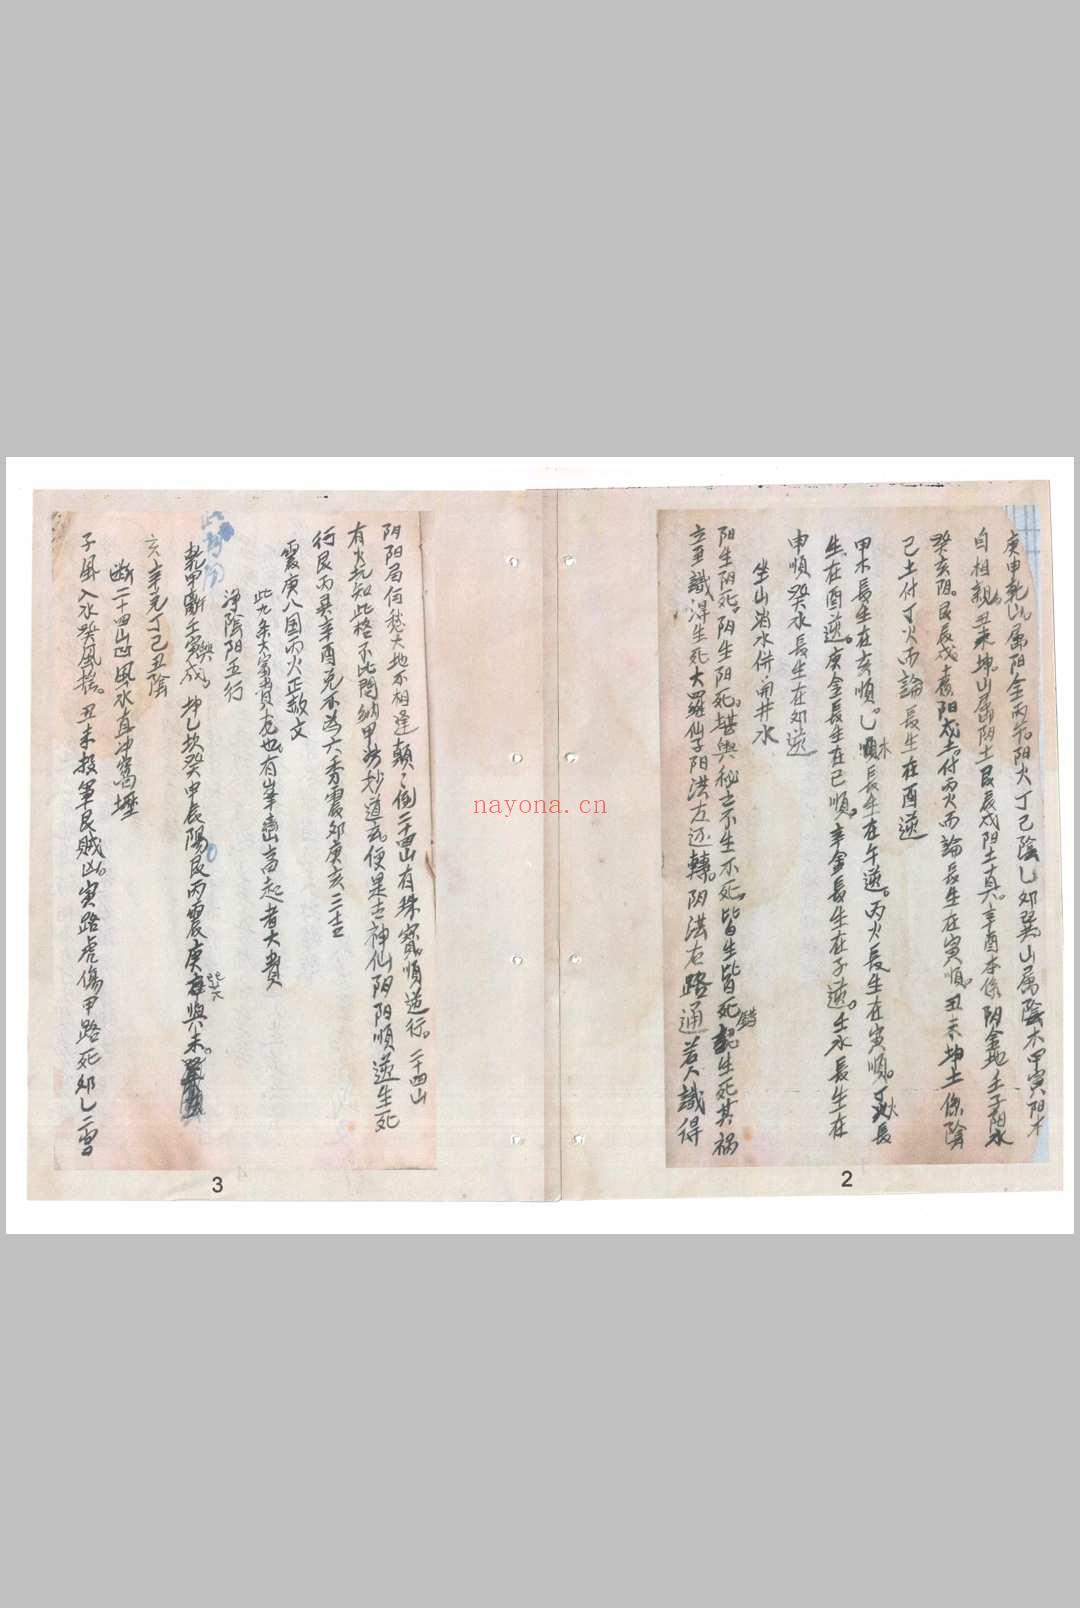 庚申乾山属阳金丙午阳火丁巳陰乙卯巽山属陰木甲寅阳木
自相親丑未坤山属阴土艮辰戍阳土真辛酉本係阴金地壬子阳水
癸亥阴艮辰戍阳戊土付丙火而論長生在寅順丑未坤土係陰
己土付丁火而論長生在酉逆
甲木長生在亥順乙木長生在午逆丙火長生在寅順丁火長
生在酉逆庚金長生在巳順辛金長生在子逆壬水長生在
申順癸水長生在卯逆
坐山消水併用井水
阳生阴死阴生阳死堪與秘之不生不死皆生皆死錯認生死其祸
立至識得生死大羅仙子阳洪左边轉阴洪右路通若人識得
2
阴阳局何愁大地不相逢顛倒二十四山有珠寶順逆行二十四山
有火坑知此格不比閑納甲妙道玄便是士神仙阴阳順逆生死
行艮丙巽辛酉兑不为六秀震卯庚亥三吉
震庚八国丙火正赦文
此九条大富貴龙也有峯巒高起者大貴
淨陰阳五行
乾甲離壬寅與戍坤乙坎癸申辰陽艮丙震庚與未
亥辛兑丁巳丑陰
断二十四山凶風水直冲窩壢
子風入水癸風摇丑未投軍艮賊凶寅路虎傷甲路死卯乙二
3
nayona.cn